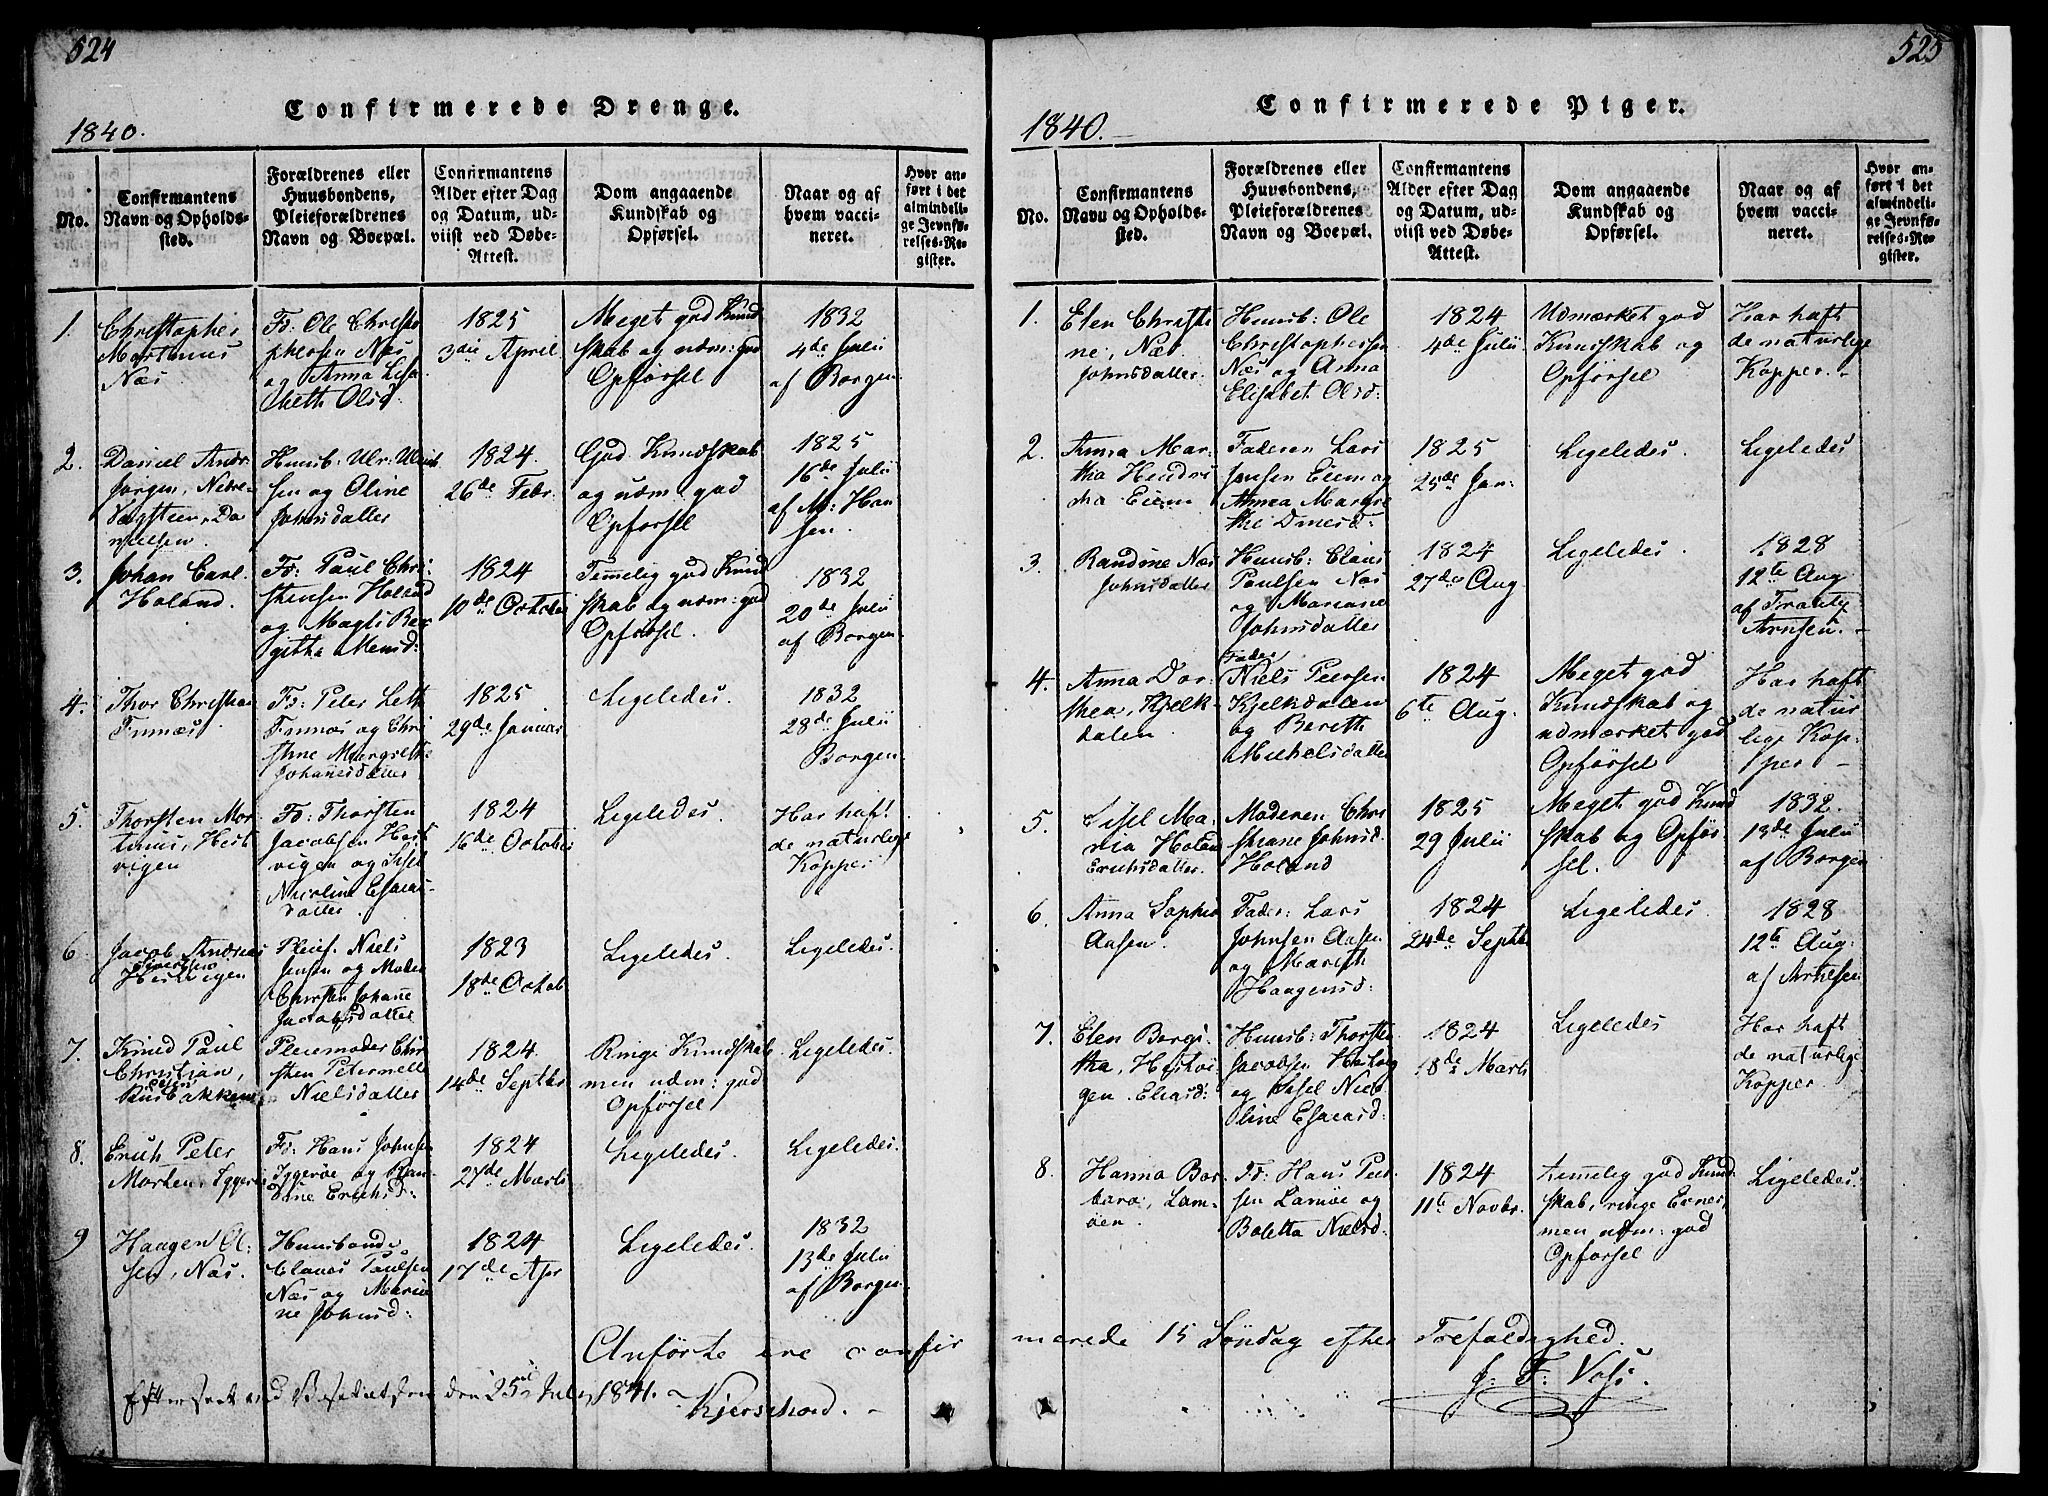 524
Confirmerede Drenge.
1840.
No.
Confirmantens
Navn og Opholds-
sted.
Forældrenes eller
Huusbondens,
Pleieforældrenes
Navn og Boepæl.
Confirmantens
Alder efter Dag
og Datum, ud-
viist ved Døbe-
Attest.
Dom angaaende
Kundskab og
Opførsel.
Naar og af
hvem vacci-
neret.
Hvor an-
ført i det
almindeli-
ge Jevnfø-
relses-Re-
gister.
1.
Christopher
Martinus
Næs
Fd: Ole Christo
phersen Næs
og Anna Lisa
beth Olsd:
1825
3die April
Meget god Kund
skab og udm: god
Opførsel
1832
4de Julii
af Borgen
2.
Daniel Andr.
Jørgen, Nedre-
Vægsteen, Da
nielsen
Huusb: Ulr: Ulrik
sen og Oline
Johnsdatter
1824.
26de Febr:
God Kundskab
og udm: god
Opførsel
1825
16de Julii
af M: Han
sen
3.
Johan Carl
Holand.
Fd: Paul Chri-
stensen Holand
og Magli Bar
githa Monsd:
1824
10de October
Temmelig god Kund
skab og udm: god
Opførsel.
1832
20de Julii
af Borgen
4.
Thor Christian
Finnæs
Fd: Peter Leth
Finnæs og Chri
stine Margrethe
Johannesdatter
1825
29de Januar
Ligeledes.
1832
28de Julii
Borgen
5.
Thorsten Mor
tinus, Hest
vigen
Fd: Thorsten
Jacobsen Hest
vigen og Sisel
Nicoline Esaias
datter.
1824
16de October
Ligeledes.
Har haft
de naturlige
Kopper
6
Jacob Andreas
Hestvigen
Pleief. Niels
Jensen og Moder
Chirsten Johane
Jacobsdatter
1823
18de Octob
Ligeledes.
Ligeledes.
7.
Knud Paul
Christian,
Rusbakken
Pleiemoder Chir
sten Peternelle
Nielsdatter
1824.
14de Septbr
Ringe Kundskab
men udm: god
Opførsel
Ligeledes.
8.
Erich Peter
Morten, Iggerøe
Fd: Hans Johnsen
Iggerøe og Ran
dine Erichsd:
1824
27de Marts
Ligeledes.
Ligeledes.
9
Haagen Ol-
sen, Næs.
Huusbonde
Claus Paulsen
Næs og Maria
ne Johnsd:
1824
17de Apr
Ligeledes.
1832
13de Julii
af Borgen
Anførte ere confir
Efterseet ved Visitatsen den 25de Juli 1841. Kjerschow.
525
Confirmerede Piger.
1840.
No.
Confirmantens
Navn og Opholds-
sted.
Forældrenes eller
Huusbondens,
Pleieforældrenes
Navn og Boepæl.
Confirmantens
Alder efter Dag
og Datum, ud-
viist ved Døbe-
Attest.
Dom angaaende
Kundskab og
Opførsel.
Naar og af
hvem vacci-
neret.
Hvor an-
ført i det
almindeli-
ge Jevnfø-
relses-Re-
gister.
1.
Elen Christi
ne, Næs
Johnsdatter.
Huusb: Ole
Christophersen
Næs og Anna
Elisabet Olsd:
1824
4de Julii
Udmærket god
Kundskab og
Opførsel
Har haft
de naturlige
Kopper.-
2.
Anna Mar-
tha Hendri
cha Eiern
Faderen Lars
Jensen Eiern og
Anna Margre
the
1825
25de Jan:
Ligeledes.
Ligeledes
3.
Randine Næs
Johnsdatter
Huusb: Claus
Paulsen Næs
og Mariane
Johnsdatter
1824
27de Aug
Ligeledes.
1828
12te Aug
af
Arntsen.-
4.
Anna Dor-
thea, Kjelk-
dalen
Fader
Niels Peersen
Kjelkdalen
og Bereth
Michelsdatter
1824
6te Aug.
Meget god
Kundskab og
udmærket god
Opførsel
Har haft
de natur
lige Kop-
per -
5.
Sisel Ma-
ria Holand
Erichsdatter.
Moderen Chri
stiane Johnsd:
Holand
1825
29 Julii
Meget god Kund
skab og Opfør-
sel.
1832.
13de Julii
af Borgen
6.
Anna Sophia
Aasen.
Fader: Lars
Johnsen Aasen
og Mareth
Haagensd:
1824
24de Septbr
Ligeledes.
1828
12te Aug:
af Arntsen
7.
Elen Bergi
tha, Hestvi-
gen. Eliasd:
Huusb: Thorsten
Jacobsen Hestvig
og Sisel Nico
line Esaiasd:
1824
18de Marts
Ligeledes
Har haft
de naturlige
Kopper.
8.
Hanna Bar
bara, Lam-
øen.
Fd: Hans Peer-
sen Lamøe og
Boletta Nielsd:
1824
11te Novbr.
temmelig god Kund
skab, ringe Evner,
men udm: god
Opførsel
Ligeledes.
merede 15 Søndag efter Trefoldighed.
J. F: Voss.